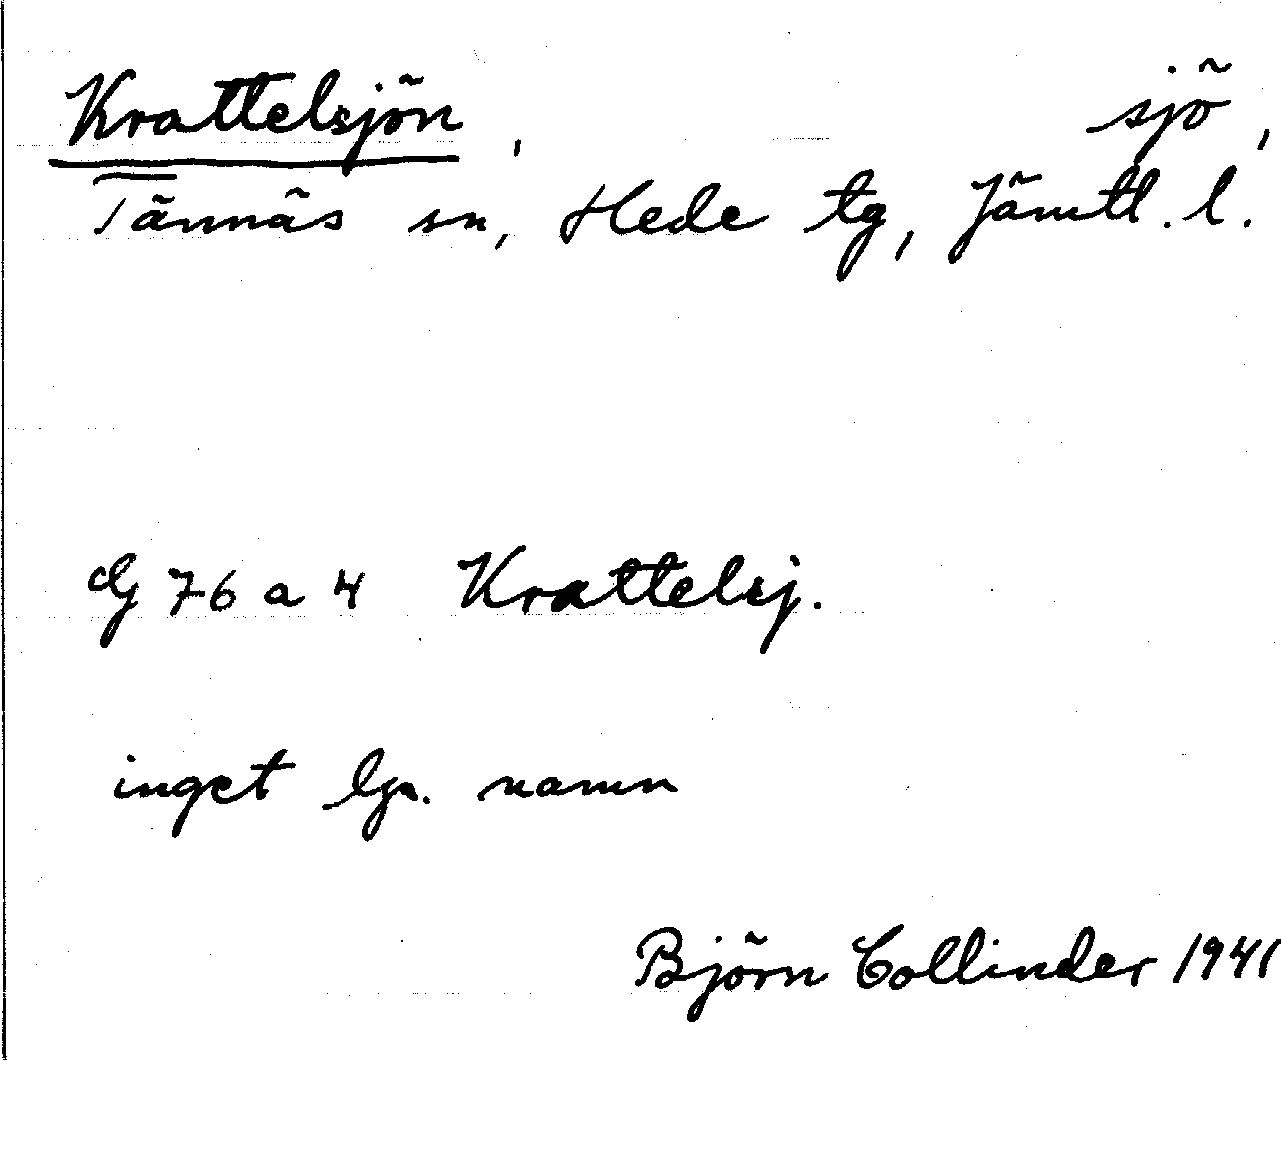 Krattelsjön, sjö,
Tännäs sn, Hede tg, Jämtl. l.
G 76 a 4 Krattelsj.
inget lp. namn
Björn Collinder 1941